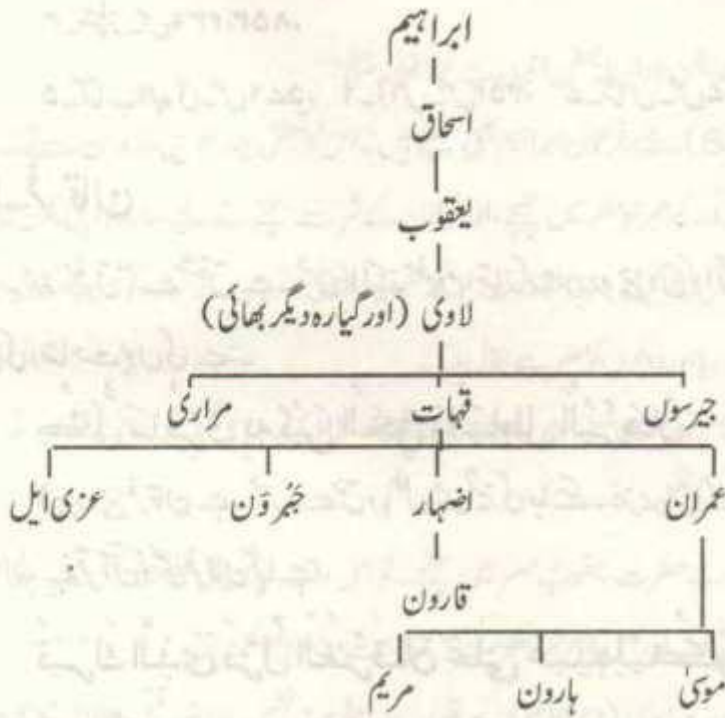 ابراہیم
اسحاق
یعقوب
لاوی (اور گیارہ دیگر بھائی)
جیرسوں قہات مراری
عمران اضہار حبرون عزی ایل
قارون
موسیٰ ہارون مریم